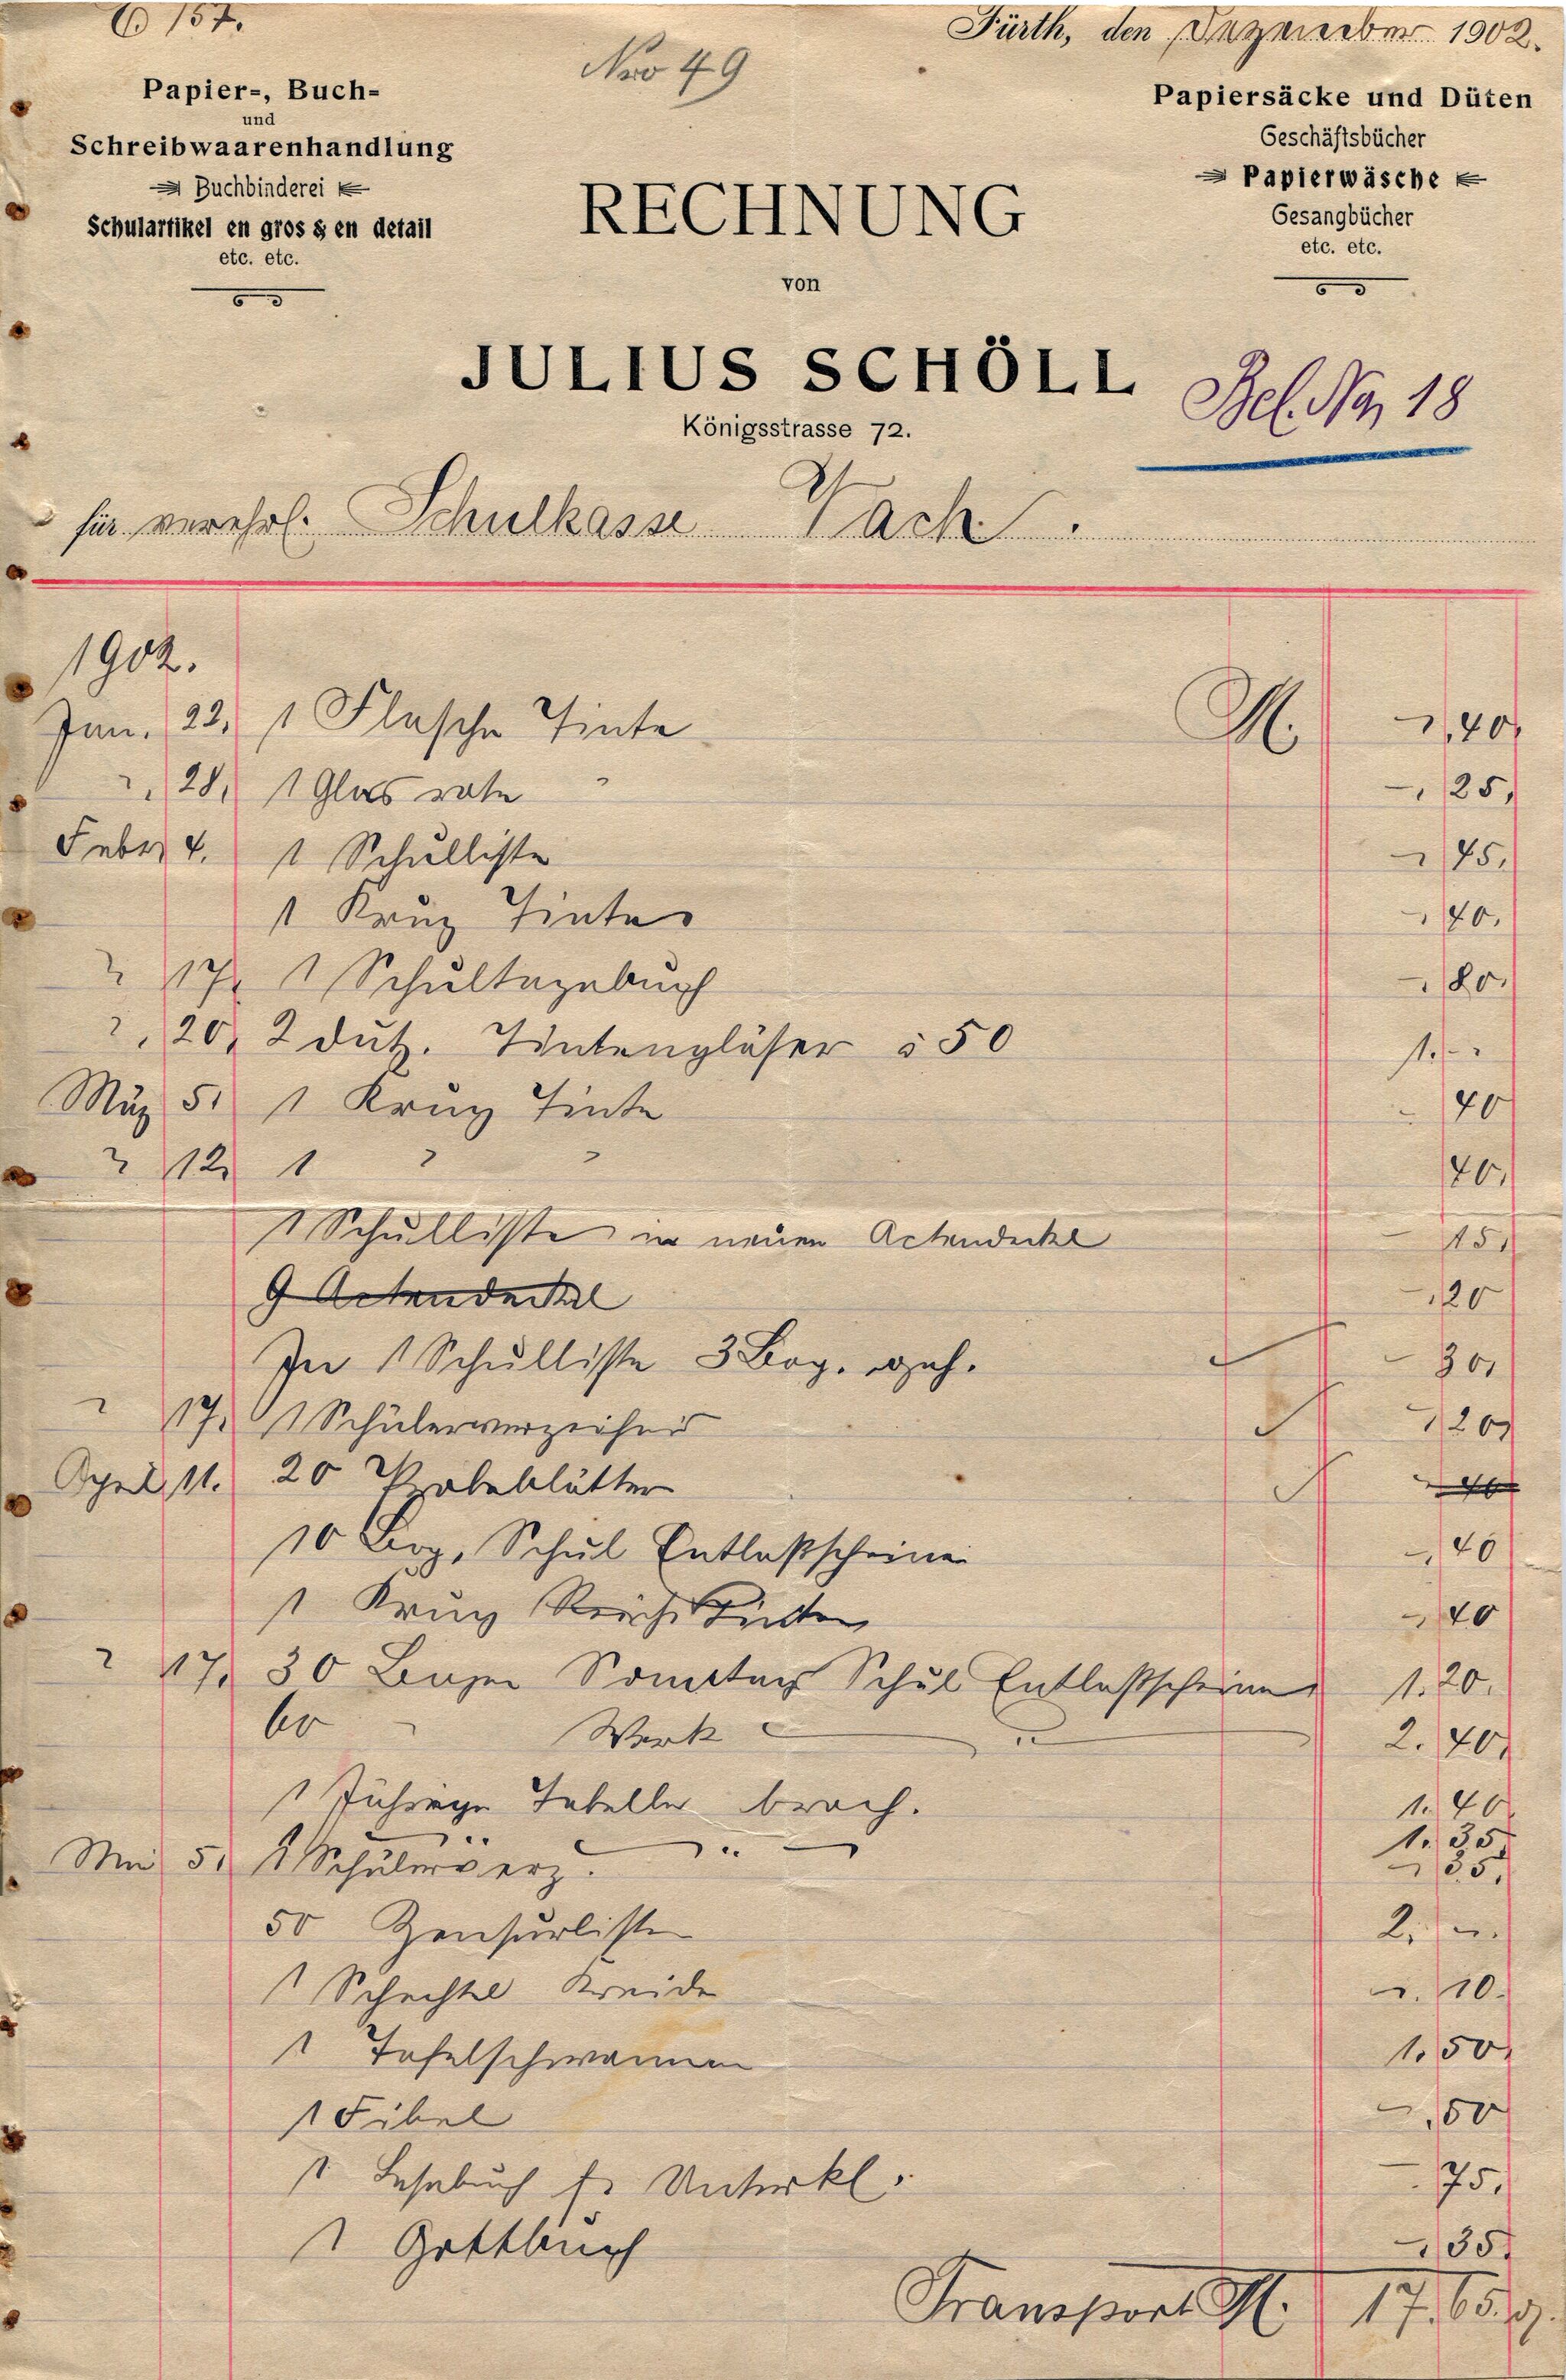 157.
Nro 49
Fürth, den Dezember 1902.
Papier-, Buch-
und
Schreibwaarenhandlung
Buchbinderei
Schulartikel en gros & en detail
etc. etc.
Papiersäcke und Düten
Geschäftsbücher
Papierwäsche
Gesangbücher
etc. etc.
RECHNUNG
von
JULIUS SCHÖLL
Königsstrasse 72.
Bel. No, 18
für verehrl. Schulkasse Vach.
1902.
Jan. 22, 1 Flasche Tinte M. -,40,
" 28, 1 Glas rote " -,25,
Febr. 4. 1 Schulliste -,45,
1 Krug Tinte -,40,
" 17, 1 Schultagebuch -,80,
" 20, 2 dutz. Tintengläser à 50 1.-
März 5, 1 Krug Tinte -,40
" 12, 1 " " 40,
1 Schulliste in neuen Actendeckel -,15,
9 Actendeckel -,20
In 1 Schulliste 3 Bog. geh. - 30,
" 17, 1 Schülerverzeichnis 1,20,
April 11. 20 Probeblätter
10 Bog. Schul Entlaßscheine -,40
1 Krug Tinte -,40
" 17, 30 Bogen Sonntags Schul Entlaßscheine 1.20.
60 " Werk " 2.40,
1 Tabelle broch. 1.40
1.35,
Mai 5, 1 Schülerverz. -,35,
50 Zensurliste 2,-
1 Schachtel Kreide -.10.
1 Tafelschwamm 1.50,
1 Fibel -,50
1 Lesebuch f. Unterkl. -.75,
1 Gottbüch -,35,
Transport M. 17,65